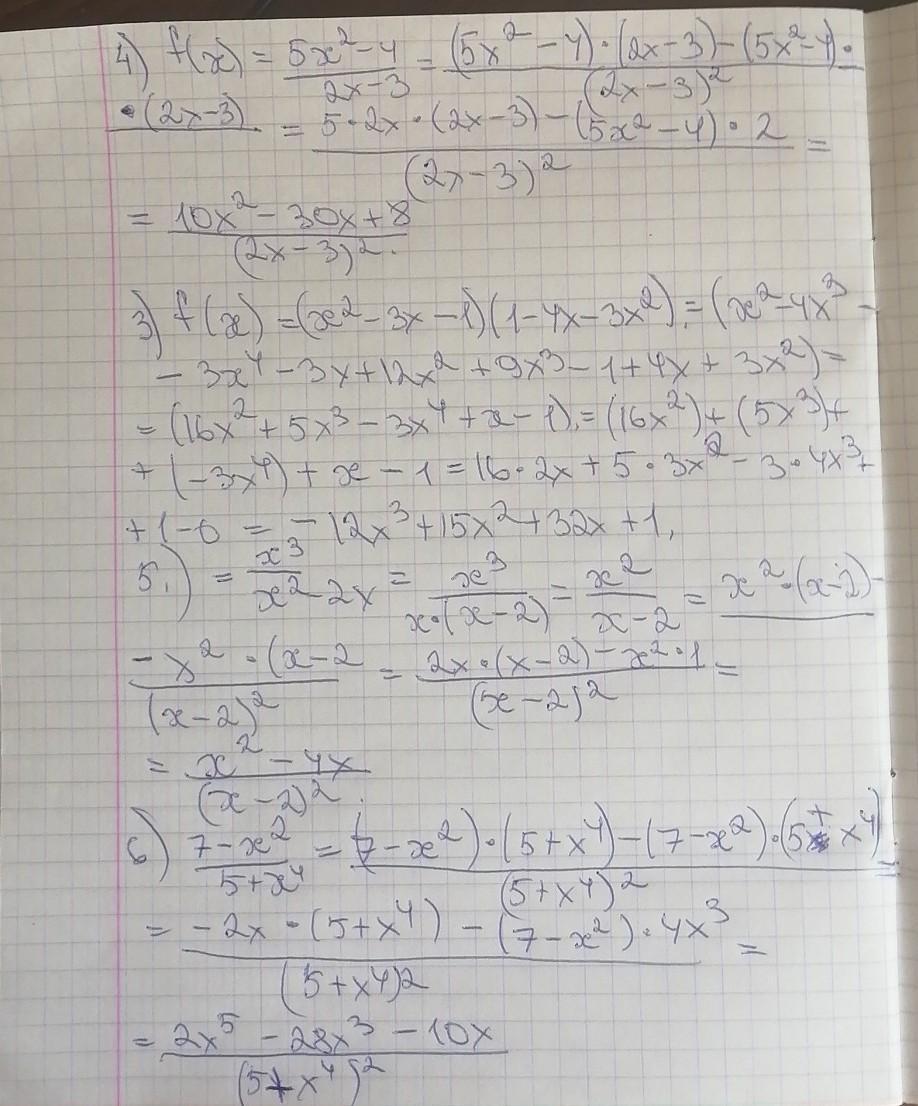 4) f(x) = (5x² - 4)/(2x - 3) = ((5x² - 4)·(2x - 3) - (5x² - 4)·
·(2x - 3))/(2x - 3)² = (5·2x·(2x - 3) - (5x² - 4)·2)/(2x - 3)² =
= (10x² - 30x + 8)/(2x - 3)².
3) f(x) = (x² - 3x - 1)(1 - 4x - 3x²) = (x² - 4x³ -
- 3x⁴ - 3x + 12x² + 9x³ - 1 + 4x + 3x²) =
= (16x² + 5x³ - 3x⁴ + x - 1) = (16x²) + (5x³) +
+ (-3x⁴) + x - 1 = 16·2x + 5·3x² - 3·4x³ +
+ 1 - 0 = -12x³ + 15x² + 32x + 1,
5.) = x³/(x² - 2x) = x³/(x·(x - 2)) = x²/(x - 2) = (x²·(x - 2) -
- x²·(x - 2)/(x - 2)² = (2x·(x - 2) - x²·1)/(x - 2)² =
= (x² - 4x)/(x - 2)².
6) (7 - x²)/(5 + x⁴) = ((7 - x²)·(5 + x⁴) - (7 - x²)·(5 + x⁴))/(5 + x⁴)² =
= (-2x·(5 + x⁴) - (7 - x²)·4x³)/(5 + x⁴)2 =
= (2x⁵ - 28x³ - 10x)/(5 + x⁴)²